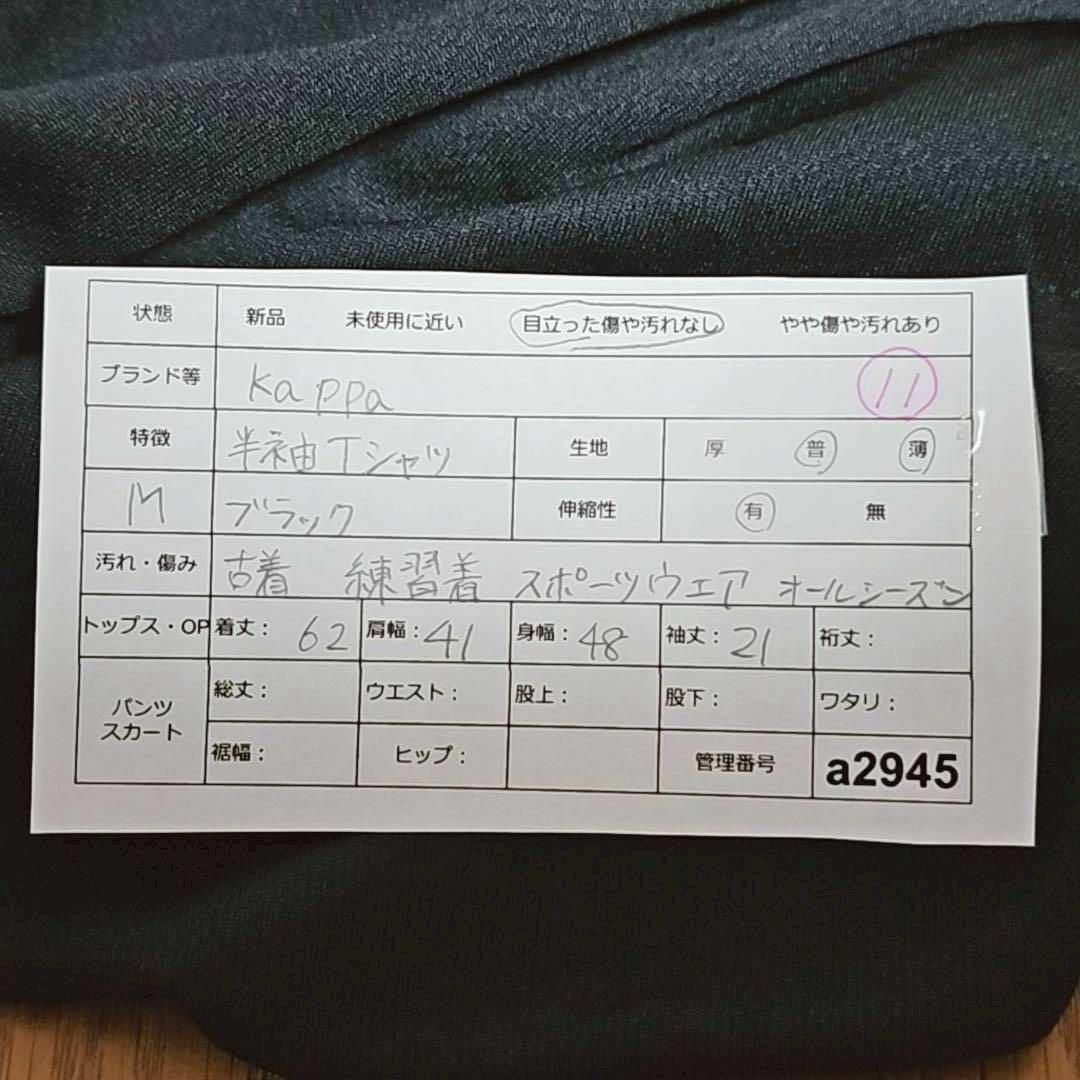 状態 新品 未使用に近い 目立った傷や汚れなし やや傷や汚れあり
ブランド等 Kappa 11
特徴 半袖Tシャツ 生地 厚 普 薄
M ブラック 伸縮性 有 無
汚れ・傷み 古着 練習着 スポーツウエア オールシーズン
トップス・OP 着丈： 62 肩幅： 41 身幅： 48 袖丈： 21 裄丈：
パンツ スカート 総丈： ウエスト： 股上： 股下： ワタリ：
裾幅： ヒップ： 管理番号 a2945